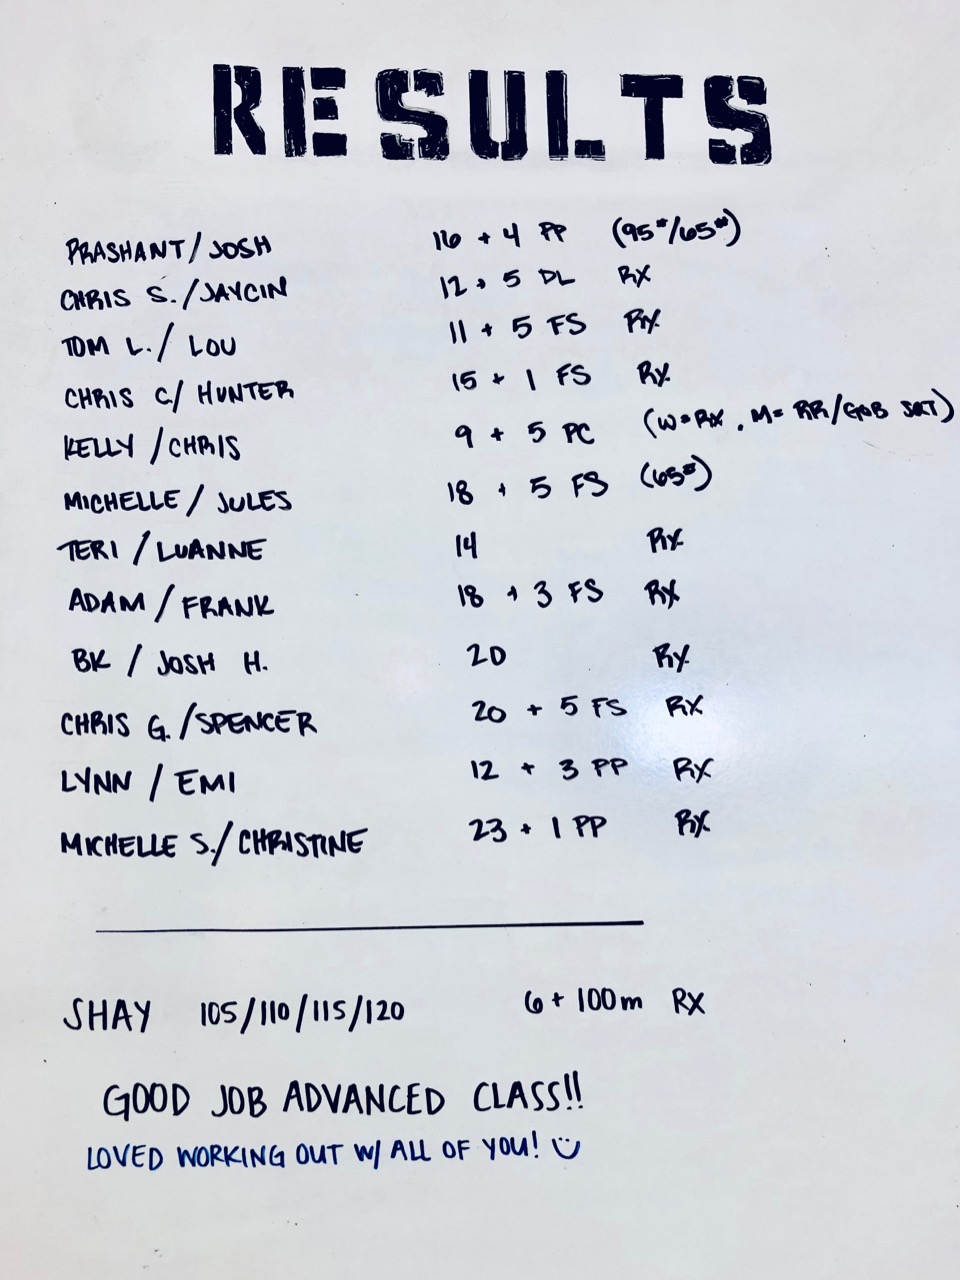 RESULTS
PRASHANT/JOSH 16 + 4 PP (95#/65#)
CHRIS S./JAYCIN 12 + 5 DL RX
TOM L./ LOU 11 + 5 FS RX
CHRIS C/ HUNTER 15 + 1 FS RX
KELLY/CHRIS 9 + 5 PC (W=RX, M= RR/GOB SQT)
MICHELLE/ JULES 18 + 5 FS (65#)
TERI / LUANNE 14 RX
ADAM / FRANK 18 + 3 FS RX
BK / JOSH H. 20 RX
CHRIS G./SPENCER 20 + 5 FS RX
LYNN / EMI 12 + 3 PP RX
MICHELLE S./CHRISTINE 23 + 1 PP RX
SHAY 105/110/115/120 6 + 100m RX
GOOD JOB ADVANCED CLASS!!
LOVED WORKING OUT W/ ALL OF YOU!